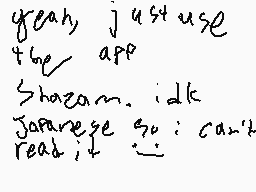 yeah, just use
the app
Shazam. idk
Japanese so i can't
read it :_: